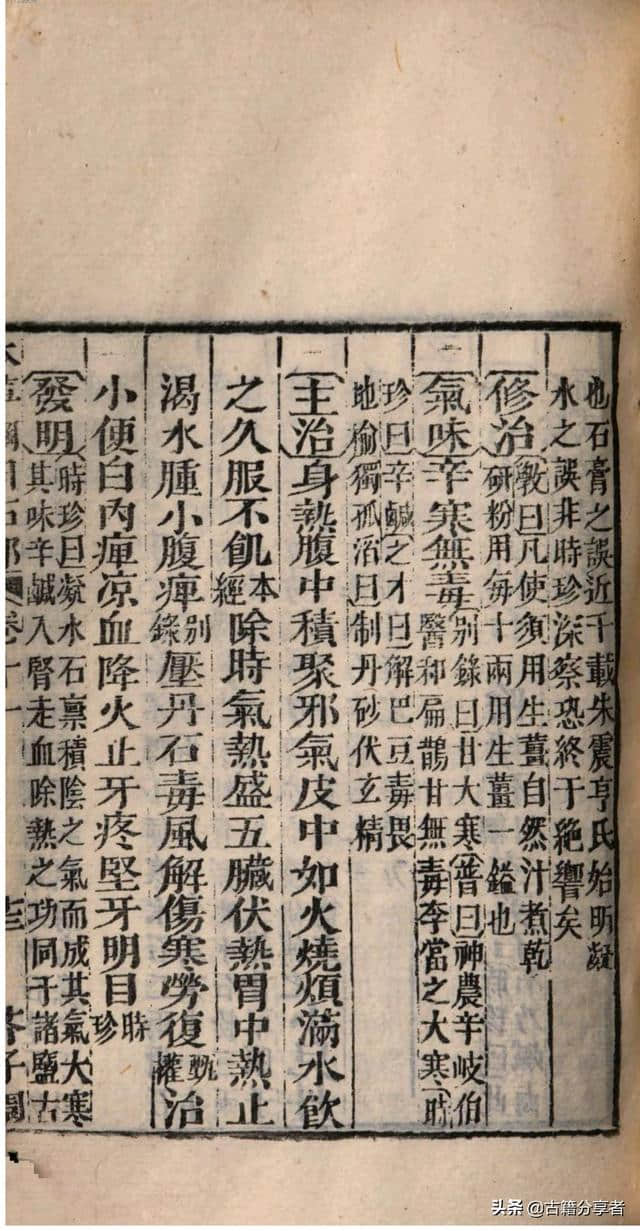 也石膏之誤近千載朱震亨氏始明凝
水之誤非時珍深察恐終于絶響矣
修治 斆曰凡使須用生薑自然汁煮乾
研粉用每十兩用生薑一鎰也
氣味辛寒無毒 别錄曰甘大寒普曰神農辛岐伯
醫和扁鵲甘無毒李當之大寒時
珍曰辛鹹之才曰解巴豆毒畏
地榆獨孤滔曰制丹砂伏玄精
主治身熱腹中積聚邪氣皮中如火燒煩滿水飲
之久服不飢本經除時氣熱盛五臟伏熱胃中熱止
渴水腫小腹痺别錄壓丹石毒風解傷寒勞復甄權治
小便白內痺凉血降火止牙疼堅牙明目時珍
發明 時珍曰凝水石禀積陰之氣而成其氣大寒
其味辛鹹入腎走血除熱之功同于諸鹽古
頭条 @古籍分享者